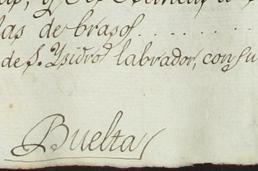 las de brasos . . . . . . . .
de S. Ysidro labrador, con su
Buelta